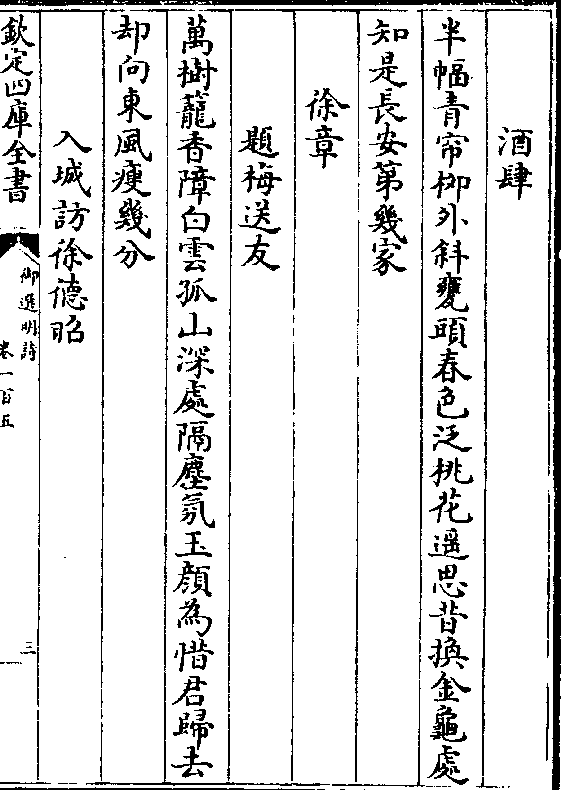 酒肆
半幅青帘柳外斜甕頭春色泛桃花遥思昔換金龜處
知是長安第幾家
徐章
題梅送友
萬樹籠香障白雲孤山深處隔塵氛玉顔為惜君歸去
却向東風瘦幾分
入城訪徐德昭
欽定四庫全書
御選明詩
卷一百五
三